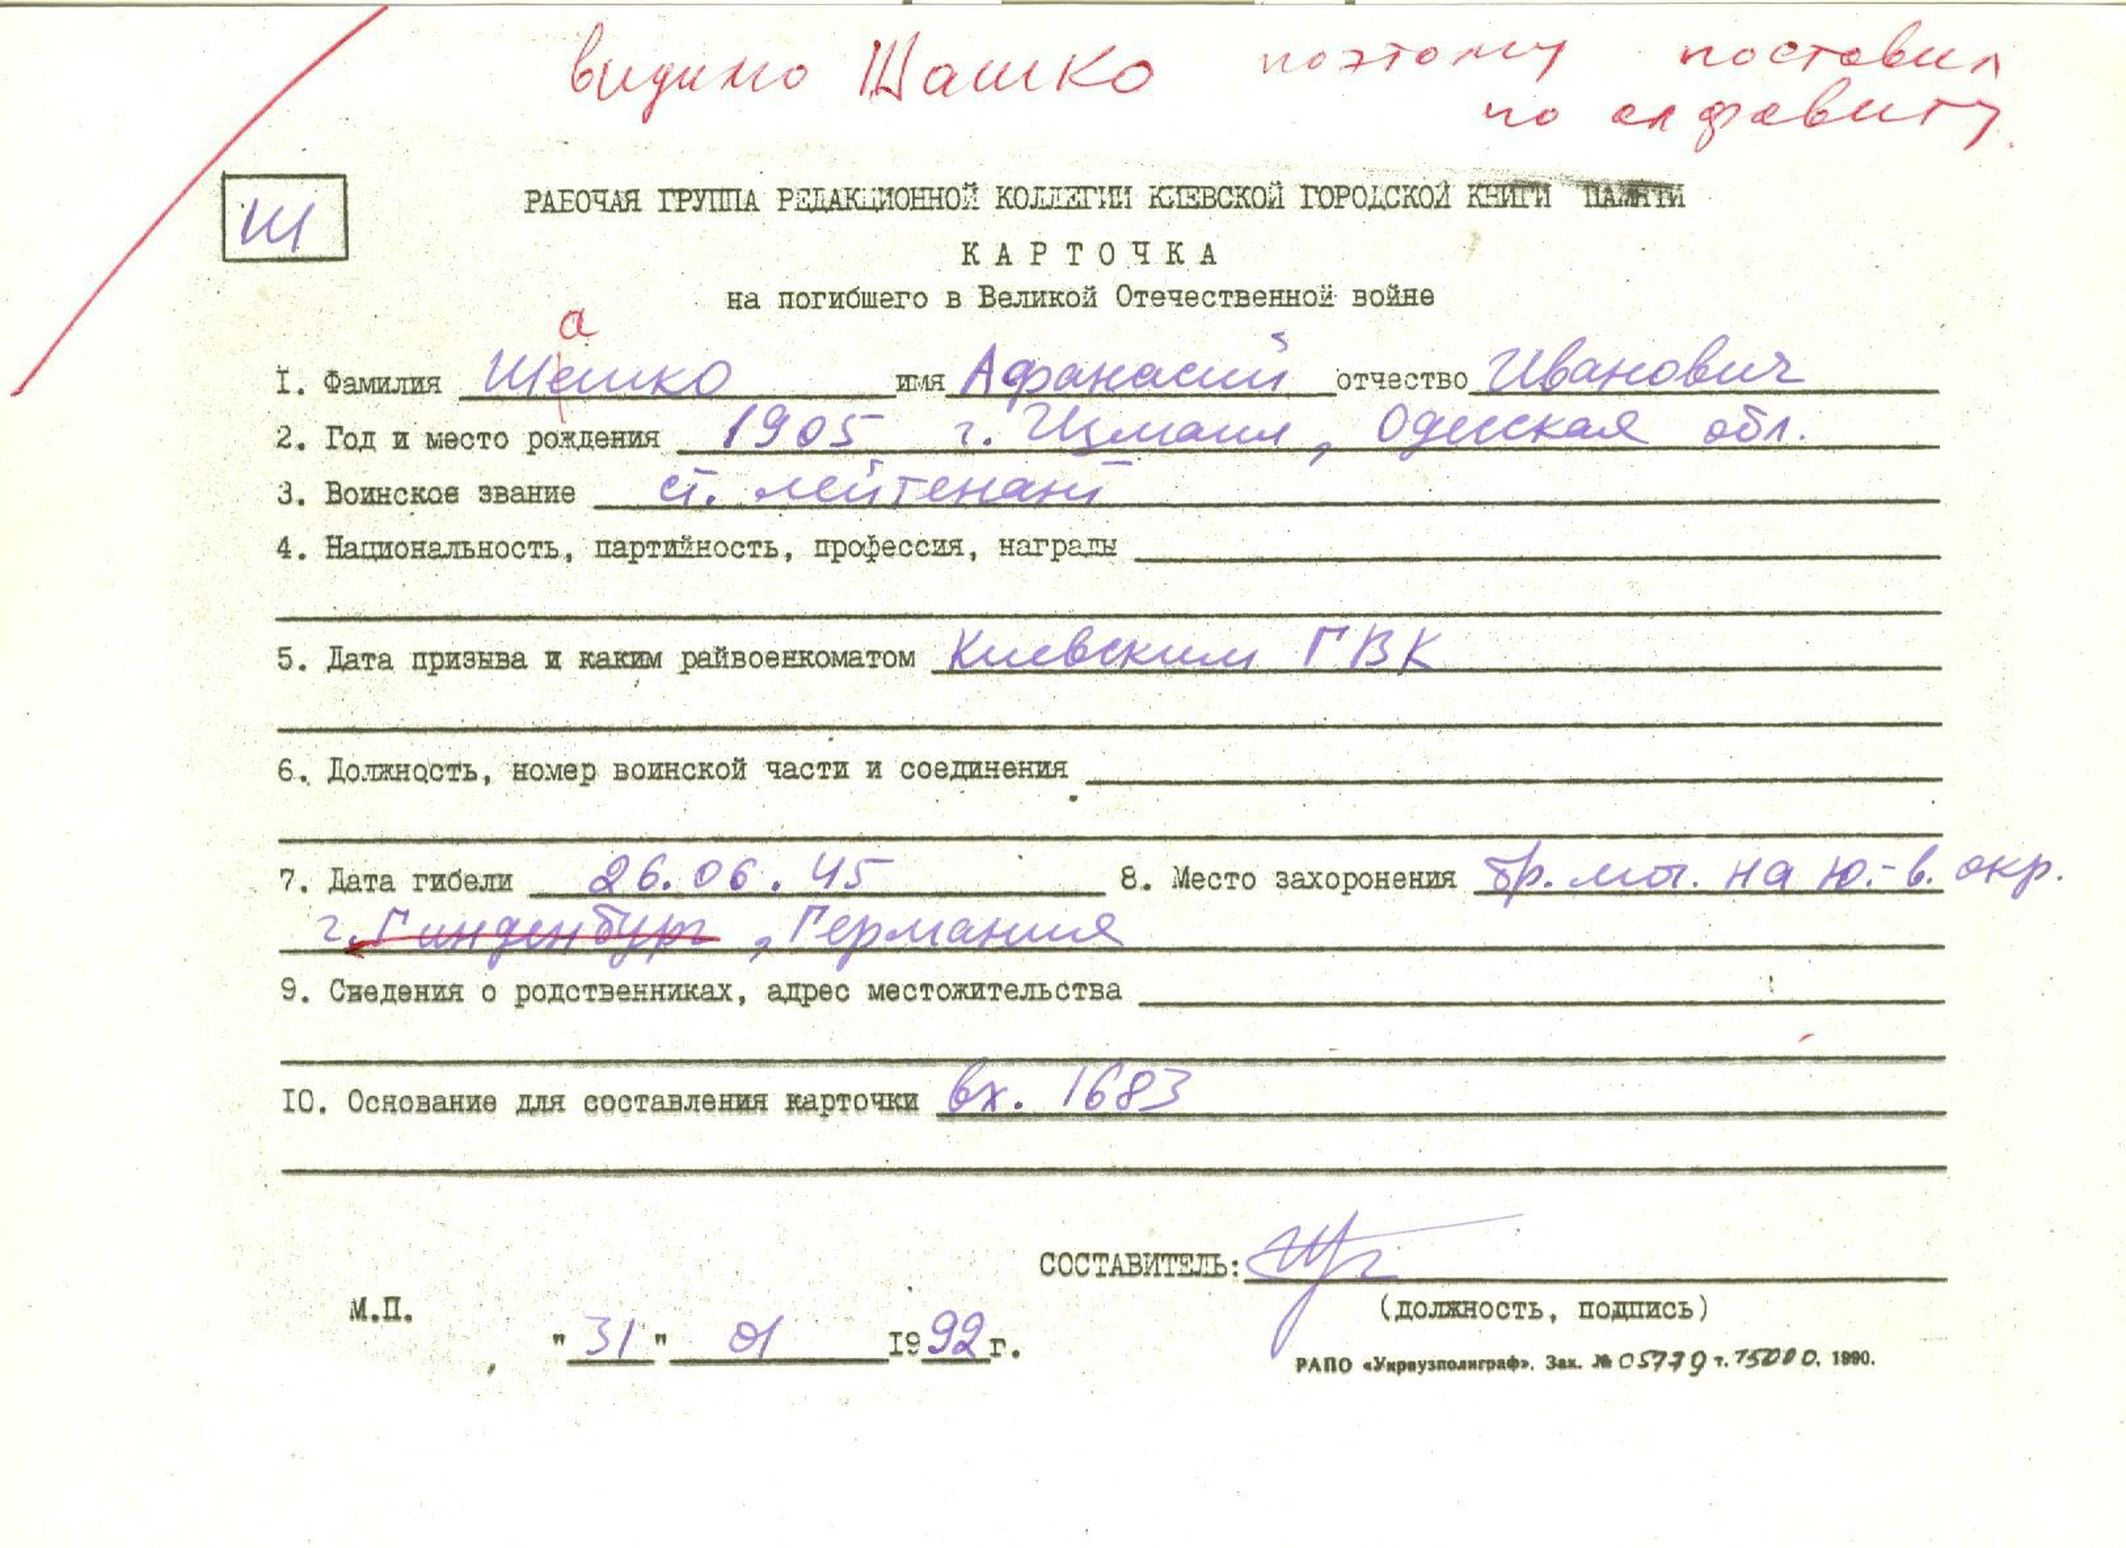 видимо Шашко поэтому поставил
по алфавиту.
Ш
РАБОЧАЯ ГРУППА РЕДАКЦИОННОЙ КОЛЛЕГИИ КИЕВСКОЙ ГОРОДСКОЙ КНИГИ ПАМЯТИ
КАРТОЧКА
на погибшего в Великой Отечественной войне
а
1. Фамилия Шешко имя Афанасий отчество Иванович
2. Год и место рождения 1905 г. Измаил, Одесская обл.
3. Воинское звание ст. лейтенант
4. Национальность, партийность, профессия, награды
5. Дата призыва и каким райвоенкоматом Киевским ГВК
6. Должность, номер воинской части и соединения
7. Дата гибели 26.06.45 8. Место захоронения бр. мог. на ю.-в. окр.
г. Гинденбург, Германия
9. Сведения о родственниках, адрес местожительства
10. Основание для составления карточки вх. 1683
СОСТАВИТЕЛЬ:
(должность, подпись)
М.П.
"31" 01 1992 г.
РАПО «Укрвузполиграф». Зак. № 05779 т. 75000. 1990.